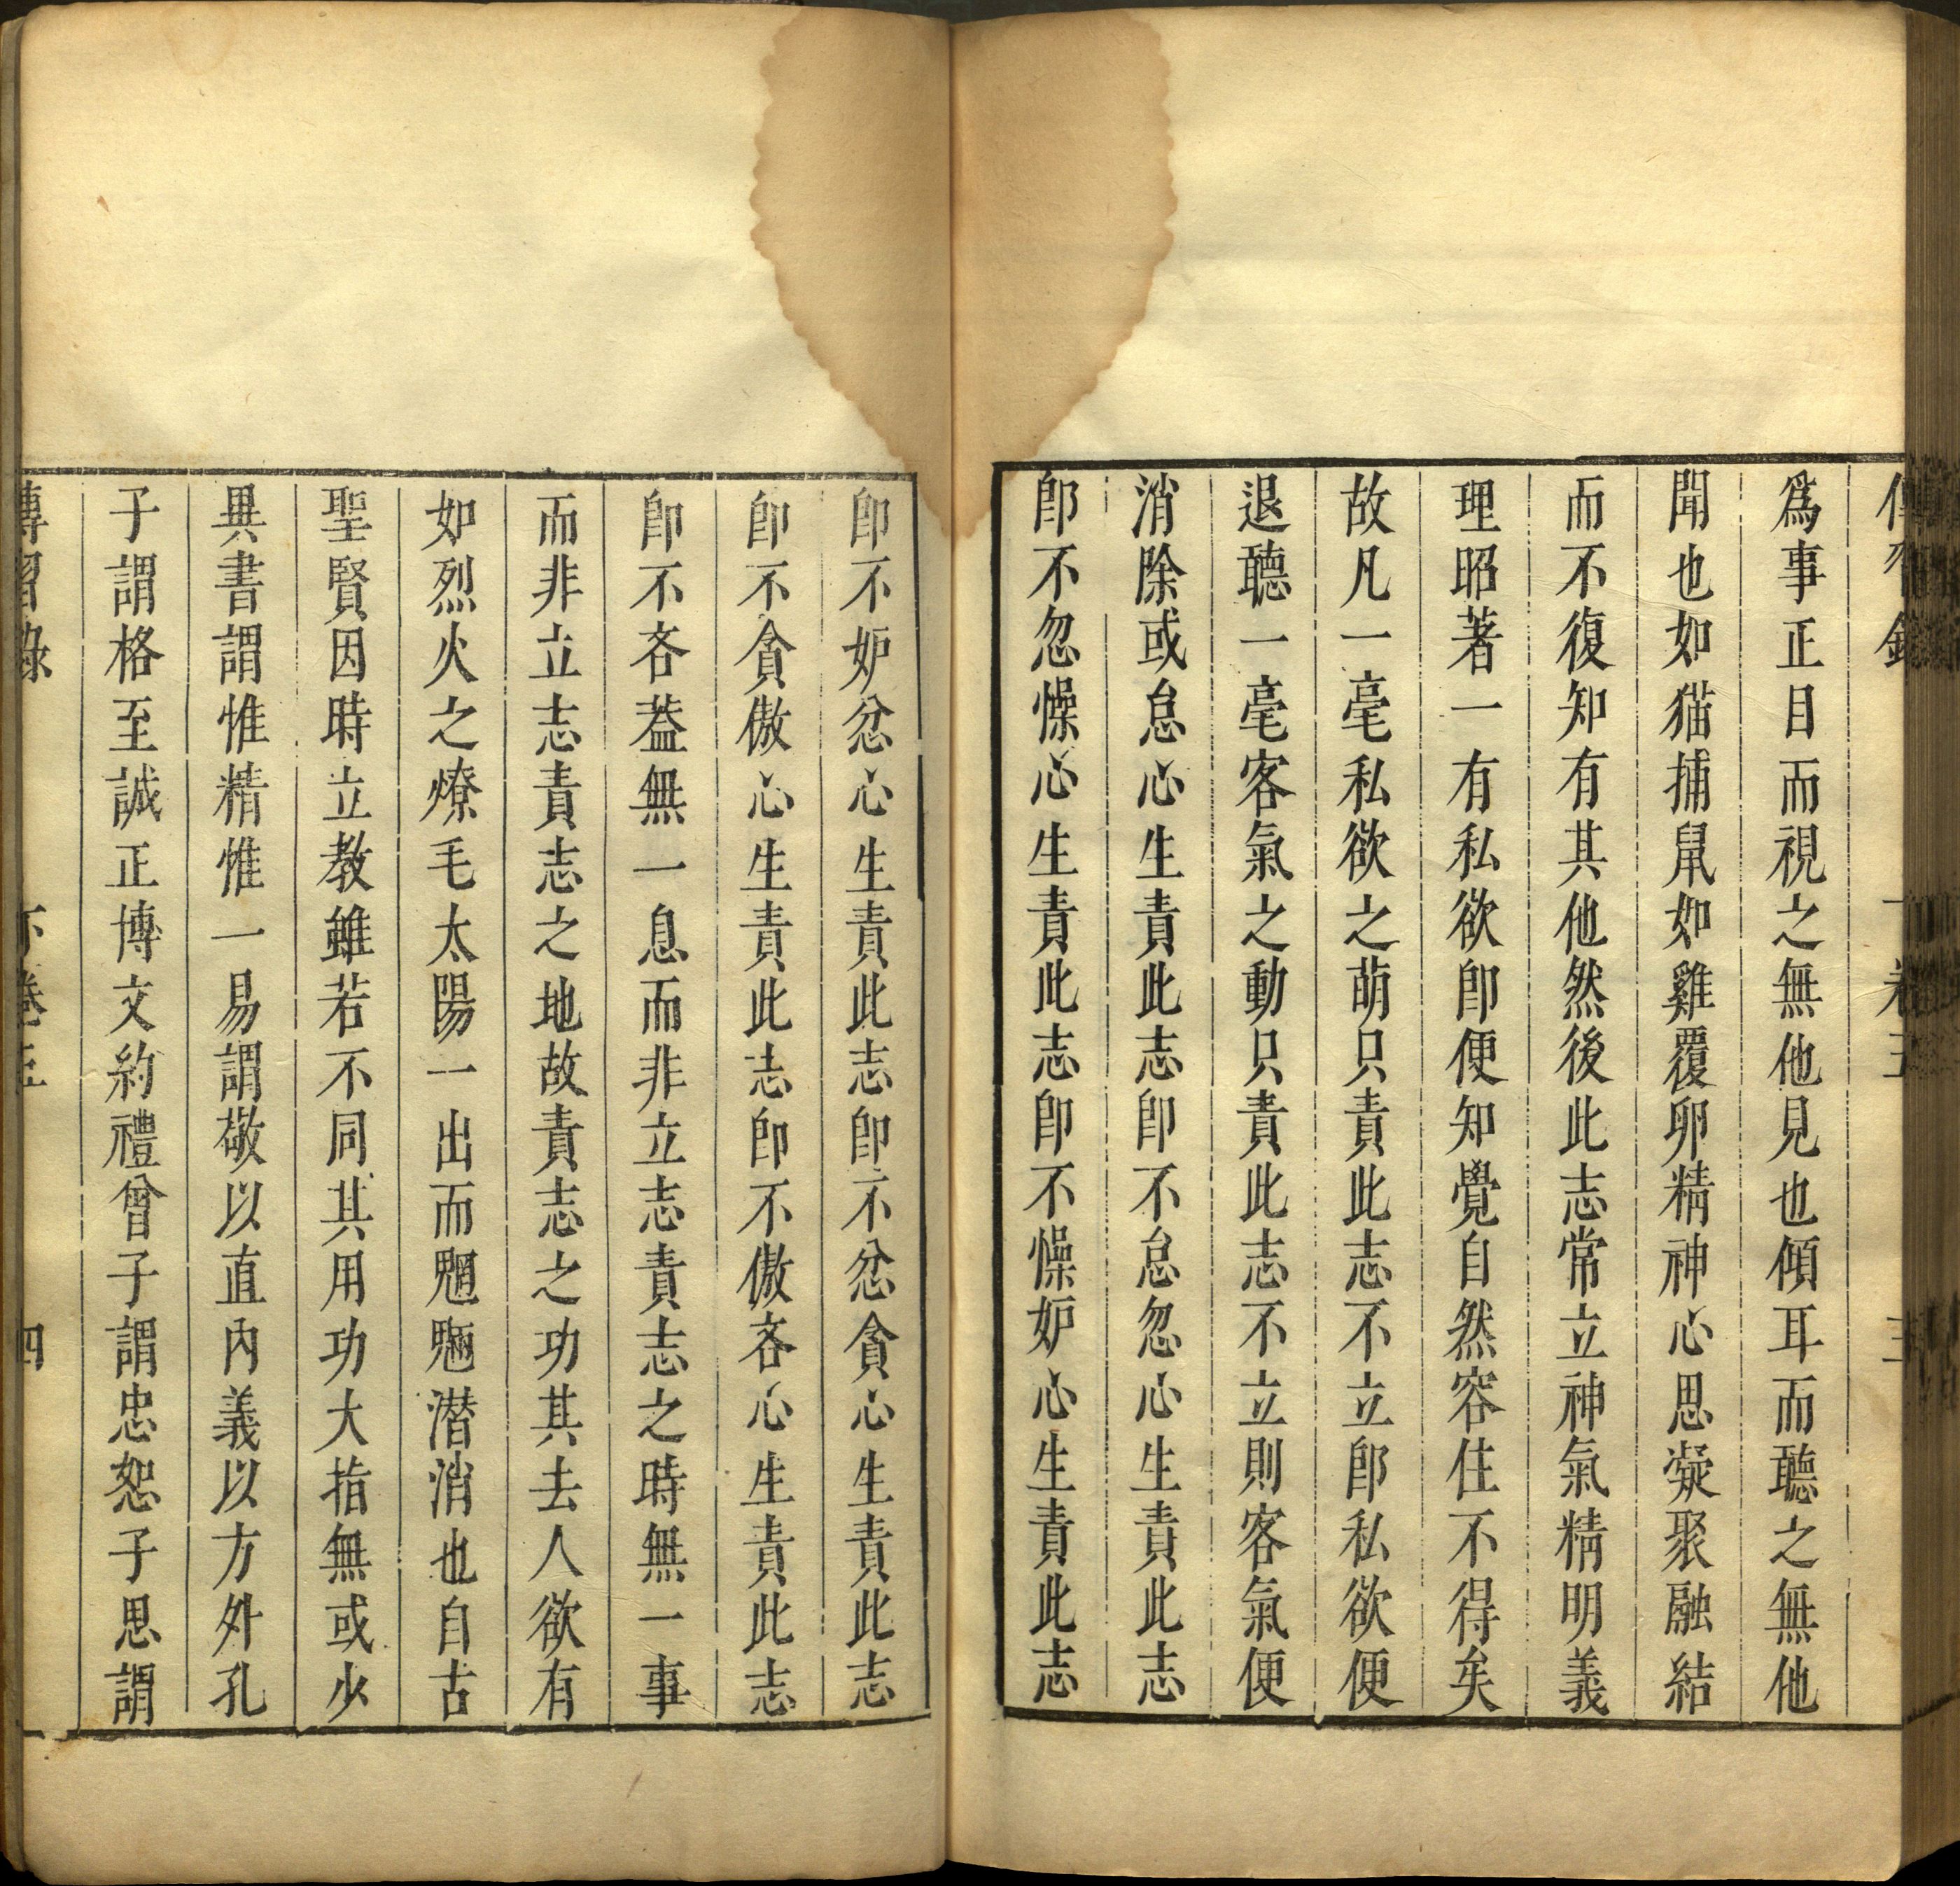 傳習錄 下卷五 三
爲事正目而視之無他見也傾耳而聽之無他
聞也如猫捕鼠如雞覆卵精神心思凝聚融結
而不復知有其他然後此志常立神氣精明義
理昭著一有私欲卽便知覺自然容住不得矣
故凡一毫私欲之萌只責此志不立卽私欲便
退聽一毫客氣之動只責此志不立則客氣便
消除或怠心生責此志卽不怠忽心生責此志
卽不忽懆心生責此志卽不懆妒心生責此志
卽不妒忿心生責此志卽不忿貪心生責此志
卽不貪傲心生責此志卽不傲吝心生責此志
卽不吝葢無一息而非立志責志之時無一事
而非立志責志之地故責志之功其去人欲有
如烈火之燎毛太陽一出而魍魎潛消也自古
聖賢因時立教雖若不同其用功大指無或少
異書謂惟精惟一易謂敬以直內義以方外孔
子謂格至誠正博文約禮曾子謂忠恕子思謂
傳習錄 下卷五 四